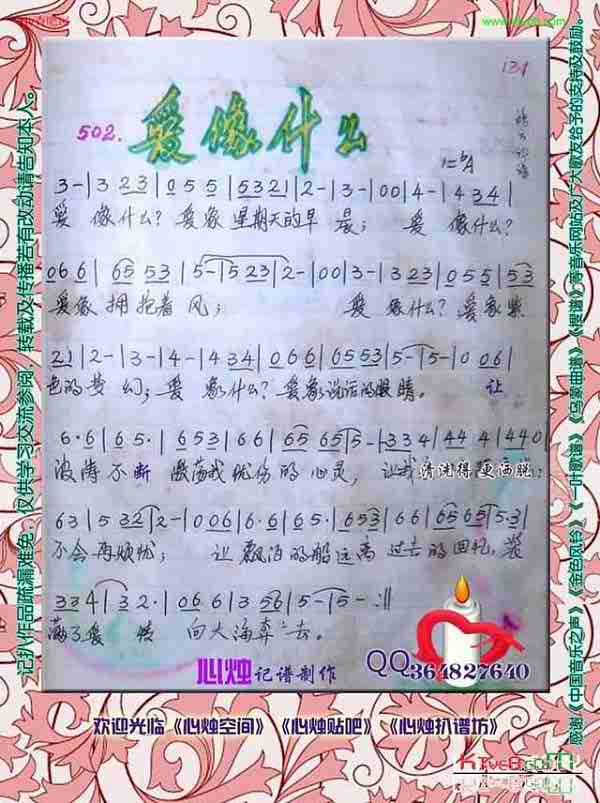 131
502. 爱像什么
1=♭A
3-|3 23|0 5 5|5321|2-|3-|00|4-|4 34|
爱 像什么? 爱象星期天的早晨; 爱 像什么?
066|65 53|5-|5 23|2-|00|3-|3 23|055|53
爱象拥抱着风; 爱 像什么? 爱象紫
21|2-|3-|4-|4 34|066|6553|5-|5-|0 06|
色的梦幻; 爱 像什么? 爱象说话的眼睛。 让
6·6|65·|653|66|65 65|5-|334|44 4|440|
浪涛不断 激荡我忧伤的心灵, 让我清洗得更洒脱;
63|5 32|2-|006|6·6|65·|653|66|65 65|5·3|
不会再烦忧; 让飘泊的船远离过去的回忆, 装
334|32·|066|3 56|5-|5-:||
满了爱 向大海奔去。
心烛记谱制作
QQ364827640
欢迎光临《心烛空间》《心烛贴吧》《心烛扒谱坊》
记扒作品疏漏难免、仅供学习交流参阅、转载及传播若有改动请告知本人。
感谢《中国音乐之声》《金色风铃》《一片歌谱》《乌蒙曲谱》《搜谱》等音乐网站及广大歌友给予的支持及鼓励。